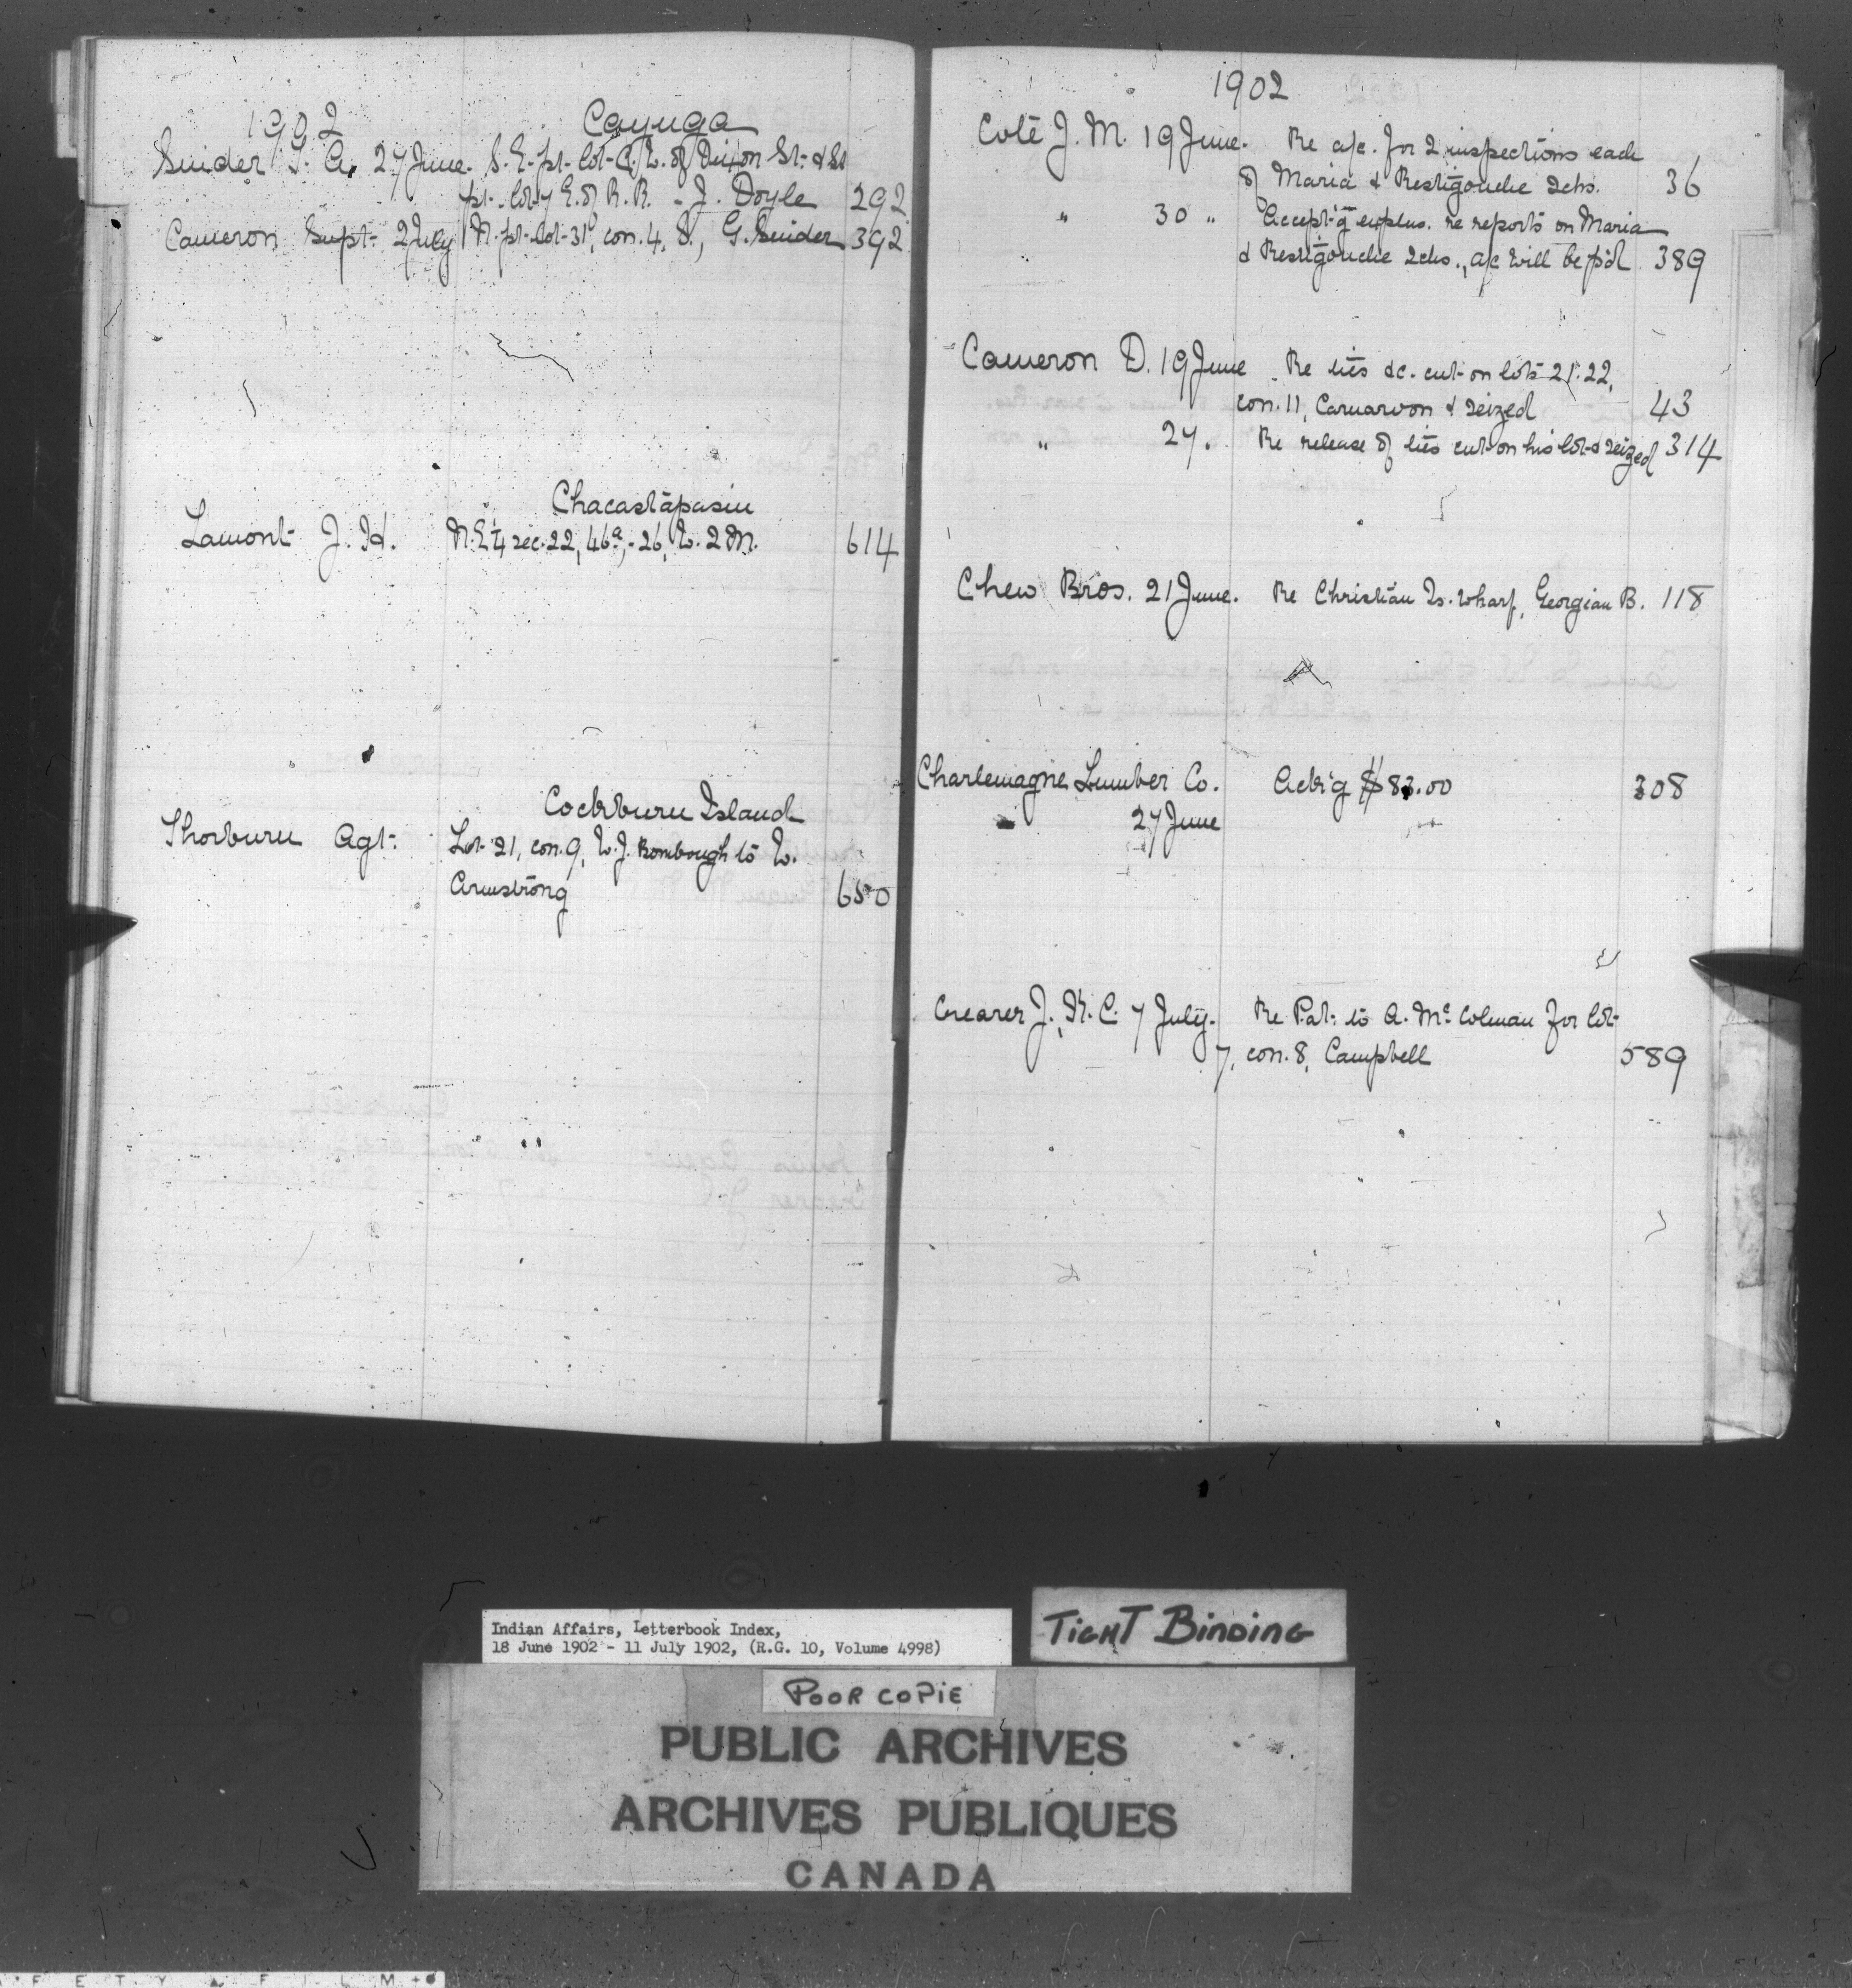 1902 Cayuga
Snider G. A. 27 June. S.E. pt. lot C. W. of Dixon St. & St
pt. lot 7 E. of R.R. - J. Doyle 292
Cameron Supt. 2 July N. pt. lot 31, con. 4, S., G. Snider 392
Chacastapasin
Lamont J. H. N.E ¼ sec. 22, 46a, - 26, W. 2 M. 614
Cockburn Island
Thorburn Agt. Lot 21, con. 9, W. J. Bombough to W.
Armstrong 650
1902
Coté J. M. 19 June. Re a/c. for 2 inspections each
of Maria & Restigouche Schs. 36
" 30 " Accept'g explns. re reports on Maria
& Restigouche Schs., a/c will be p'd 389
Cameron D. 19 June. Re ties &c. cut on lots 21. 22,
con. 11, Carnarvon & seized 43
" 27. Re release of ties cut on his lot & seized 314
Chew Bros. 21 June. Re Christian Is. wharf, Georgian B. 118
Charlemagne Lumber Co. Ack'g $83.00 308
27 June
Crearer J., K. C. 7 July. Re Pat. to A. Mc Colman for lot
7, con. 8, Campbell 589
Indian Affairs, Letterbook Index,
18 June 1902 - 11 July 1902, (R.G. 10, Volume 4998)
TIGHT BINDING
POOR COPIE
PUBLIC ARCHIVES
ARCHIVES PUBLIQUES
CANADA
F E T Y F I L M